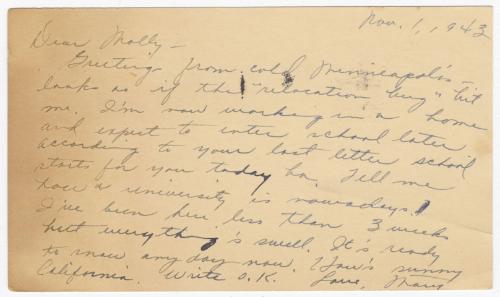 Nov. 1, 1943
Dear Molly -
Greetings from cold Minneapolis -
looks as if the "relocation bug" hit
me. I'm now working in a home
and expect to enter school later.
according to your last letter school
starts for you today ha. Tell me
how a university is nowadays!
I've been here less than 3 weeks
but everything's swell. It's ready
to snow any day now. How's sunny
California. Write O.K. Love, Mary